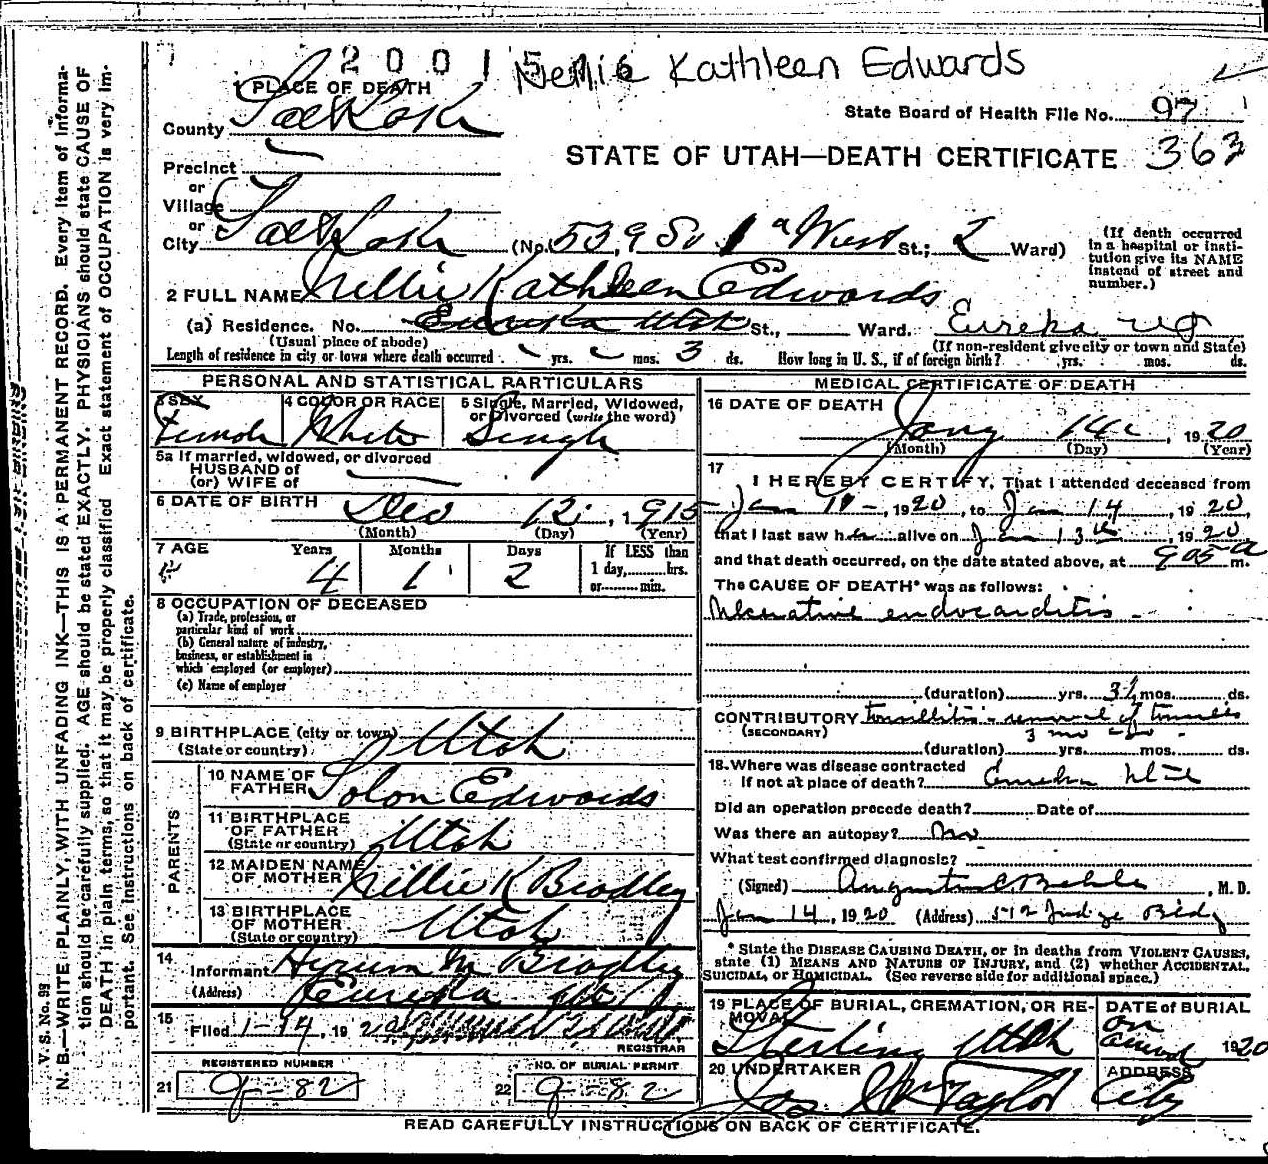 2 0 0 1 5 Nellie Kathleen Edwards
1 PLACE OF DEATH
County Salt Lake
State Board of Health File No. 97
STATE OF UTAH—DEATH CERTIFICATE 363
Precinct
or
Village
or
City Salt Lake (No. 539 So 1st West St.; 2 Ward)
(If death occurred in a hospital or institution give its NAME instead of street and number.)
2 FULL NAME Nellie Kathleen Edwards
(a) Residence. No. Eureka Utah St., Ward. Eureka Ut
(Usual place of abode) (If non-resident give city or town and State)
Length of residence in city or town where death occurred yrs. mos. 3 ds. How long in U. S., if of foreign birth? yrs. mos. ds.
PERSONAL AND STATISTICAL PARTICULARS
3 SEX 4 COLOR OR RACE 5 Single, Married, Widowed, or Divorced (write the word)
Female White Single
5a If married, widowed, or divorced
HUSBAND of
(or) WIFE of
6 DATE OF BIRTH Dec 12, 1915
(Month) (Day) (Year)
7 AGE Years Months Days If LESS than
4 1 2 1 day, hrs.
or min.
8 OCCUPATION OF DECEASED
(a) Trade, profession, or
particular kind of work
(b) General nature of industry,
business, or establishment in
which employed (or employer)
(c) Name of employer
9 BIRTHPLACE (city or town) Utah
(State or country)
PARENTS
10 NAME OF FATHER Solon Edwards
11 BIRTHPLACE OF FATHER Utah
(State or country)
12 MAIDEN NAME OF MOTHER Nellie K Bradley
13 BIRTHPLACE OF MOTHER Utah
(State or country)
14 Informant Hyrum M Bradley
(Address) Eureka Ut
15 Filed 1-14, 192
REGISTRAR
REGISTERED NUMBER NO. OF BURIAL PERMIT
21 9-82 22 9-82
MEDICAL CERTIFICATE OF DEATH
16 DATE OF DEATH
Jany 14, 1920
(Month) (Day) (Year)
17 I HEREBY CERTIFY, That I attended deceased from
Jan 11-, 1920, to Jan 14, 1920,
that I last saw her alive on Jan 13th, 1920
and that death occurred, on the date stated above, at 905 a m.
The CAUSE OF DEATH* was as follows:
Ulcerative endocarditis
(duration) yrs. 3½ mos. ds.
CONTRIBUTORY tonsillitis - removal of tonsils
(SECONDARY) 3 mo ago
(duration) yrs. mos. ds.
18. Where was disease contracted
If not at place of death? Eureka Utah
Did an operation precede death? Date of
Was there an autopsy? No
What test confirmed diagnosis?
(Signed) Augustus C. Behle, M. D.
Jan 14, 1920 (Address) 512 Judge Bldg
* State the DISEASE CAUSING DEATH, or in deaths from VIOLENT CAUSES,
state (1) MEANS AND NATURE OF INJURY, and (2) whether ACCIDENTAL,
SUICIDAL, or HOMICIDAL. (See reverse side for additional space.)
19 PLACE OF BURIAL, CREMATION, OR REMOVAL DATE OF BURIAL
Sterling Utah on 1920
20 UNDERTAKER ADDRESS
Jos Wm Taylor City
READ CAREFULLY INSTRUCTIONS ON BACK OF CERTIFICATE.
V. S. No. 99
N. B.—WRITE PLAINLY, WITH UNFADING INK—THIS IS A PERMANENT RECORD. Every item of Informa-
tion should be carefully supplied. AGE should be stated EXACTLY. PHYSICIANS should state CAUSE OF
DEATH in plain terms, so that it may be properly classified Exact statement of OCCUPATION is very im-
portant. See instructions on back of certificate.